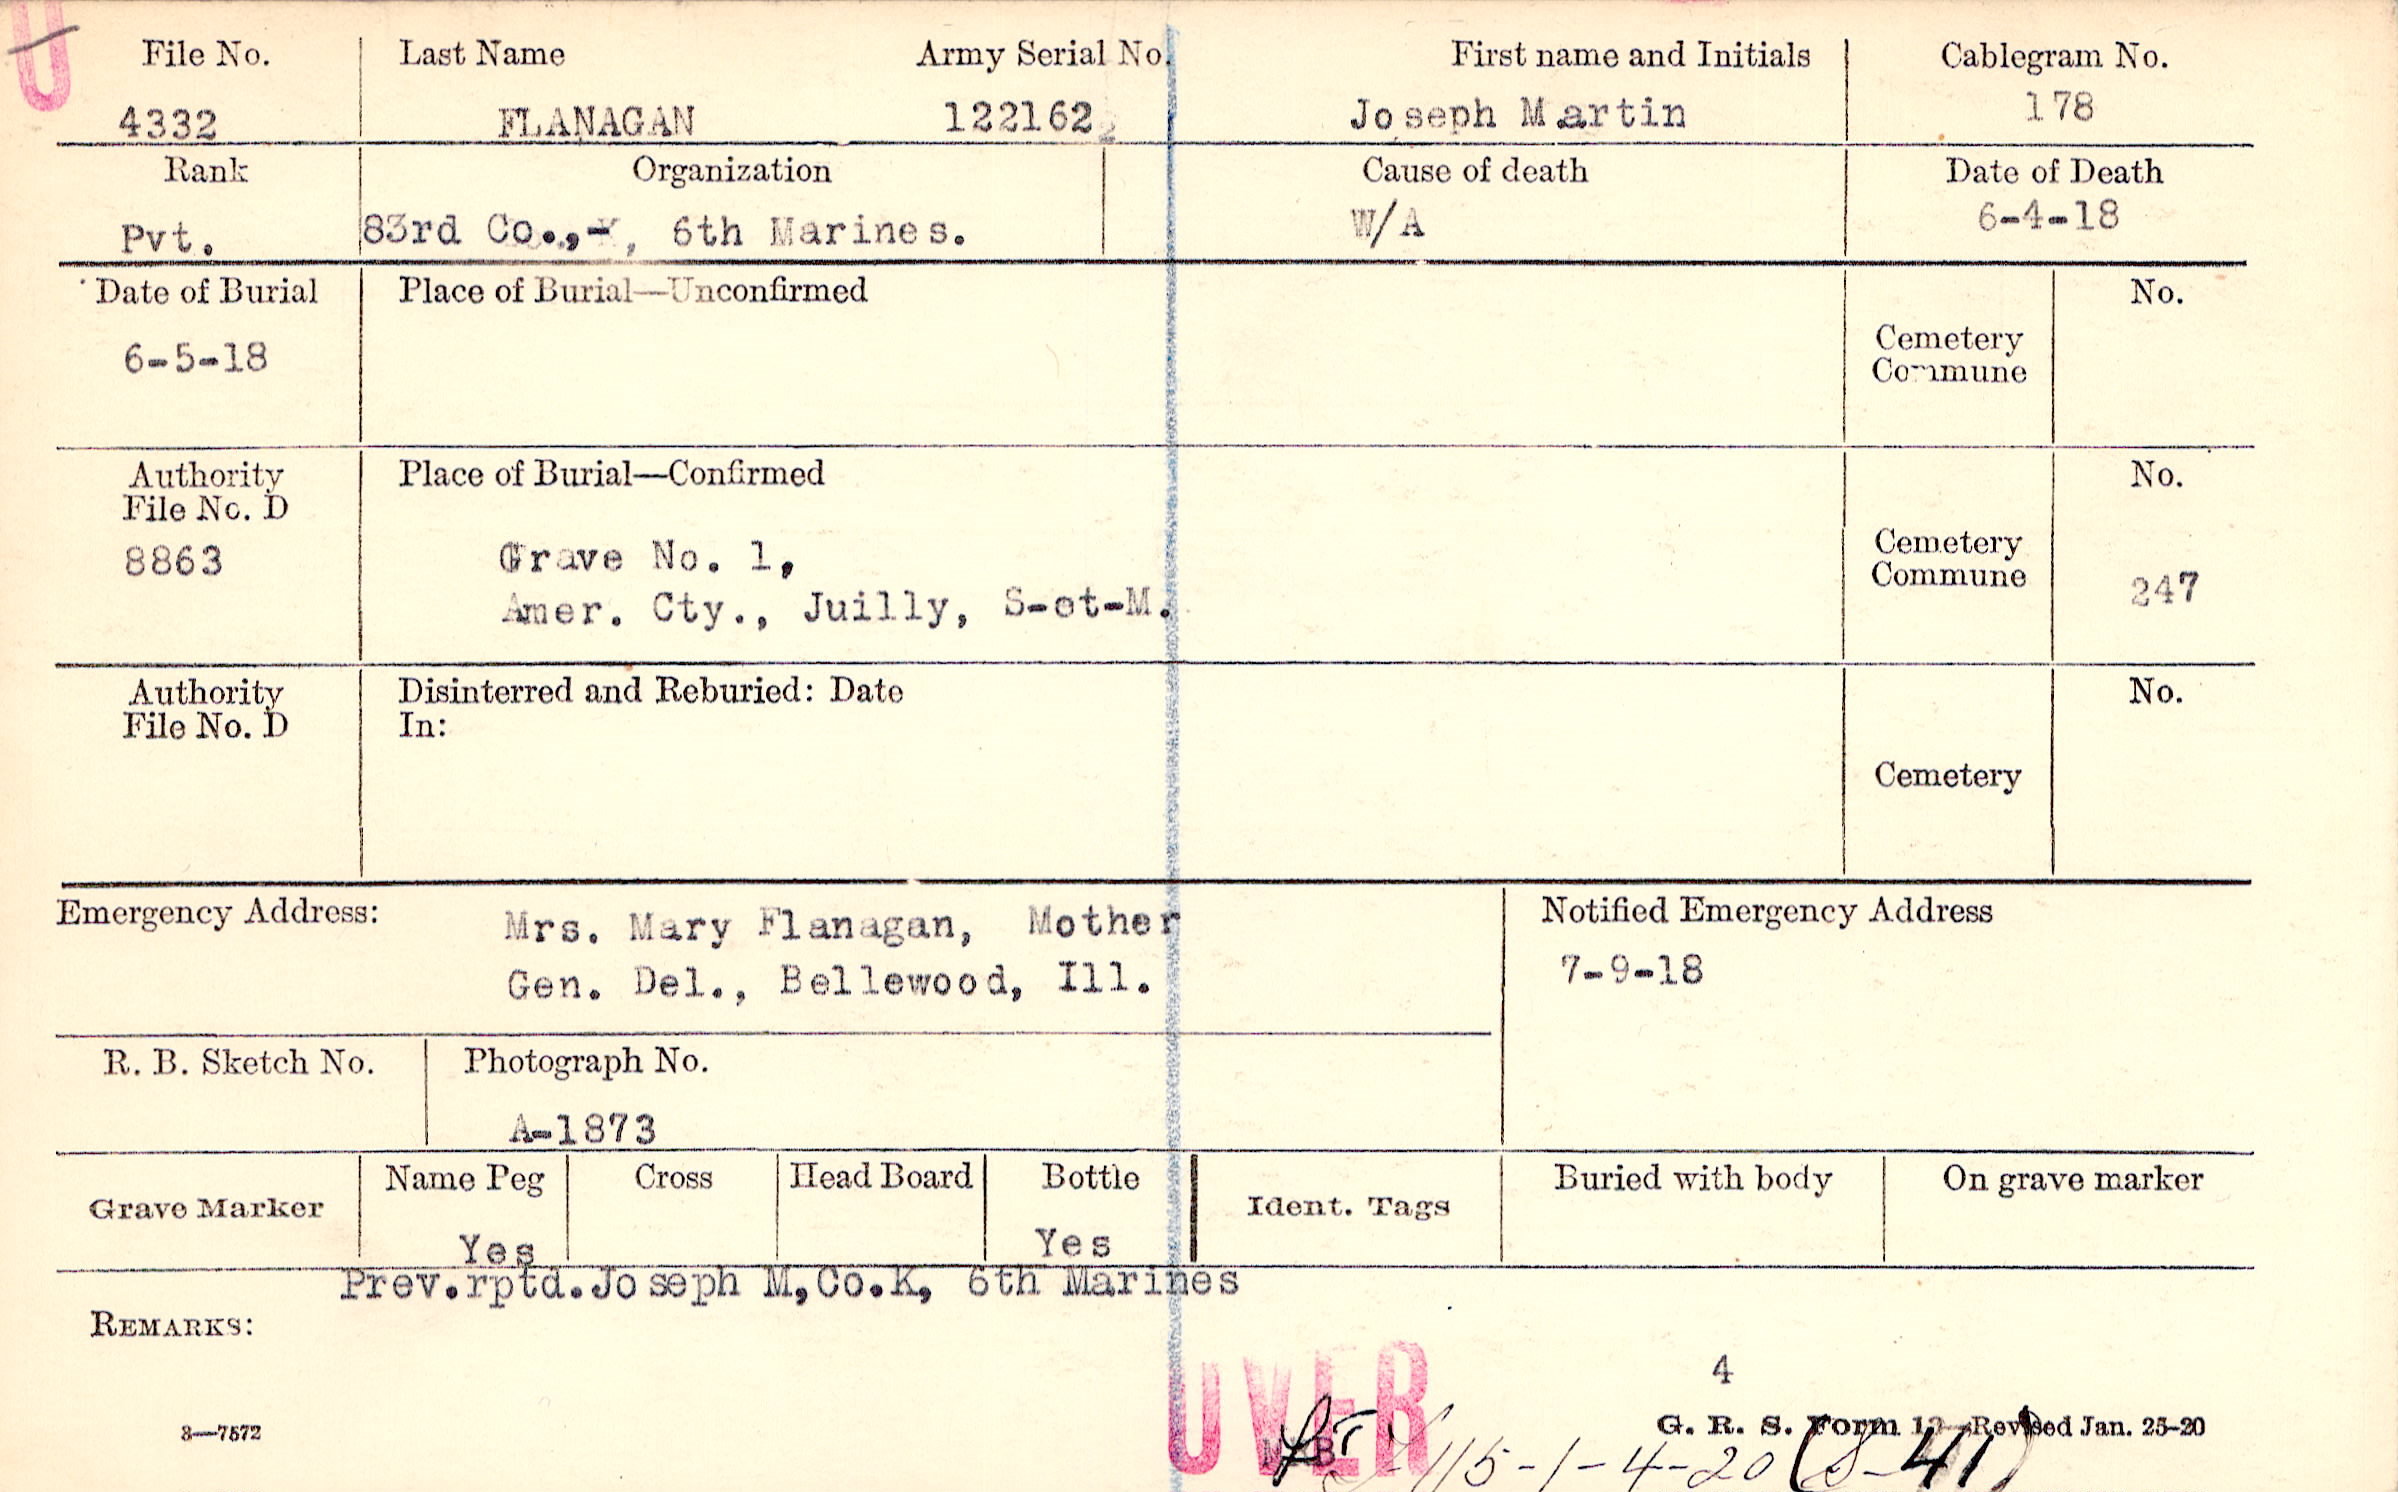 U
File No. Last Name Army Serial No. First name and Initials Cablegram No.
4332 FLANAGAN 122162 Joseph Martin 178
Rank Organization Cause of death Date of Death
Pvt. 83rd Co., 6th Marines. W/A 6-4-18
Date of Burial Place of Burial—Unconfirmed No.
6-5-18 Cemetery
Commune
Authority Place of Burial—Confirmed No.
File No. D
8863 Grave No. 1, Cemetery
Commune 247
Amer. Cty., Juilly, S-et-M.
Authority Disinterred and Reburied: Date No.
File No. D In:
Cemetery
Emergency Address: Mrs. Mary Flanagan, Mother Notified Emergency Address
Gen. Del., Bellewood, Ill. 7-9-18
R. B. Sketch No. Photograph No.
A-1873
Grave Marker Name Peg Cross Head Board Bottle Ident. Tags Buried with body On grave marker
Yes Yes
Prev.rptd.Joseph M,Co.K, 6th Marines
REMARKS:
OVER
4
3—7572 G. R. S. Form Revised Jan. 25-20
115-1-4-20 (S-41)